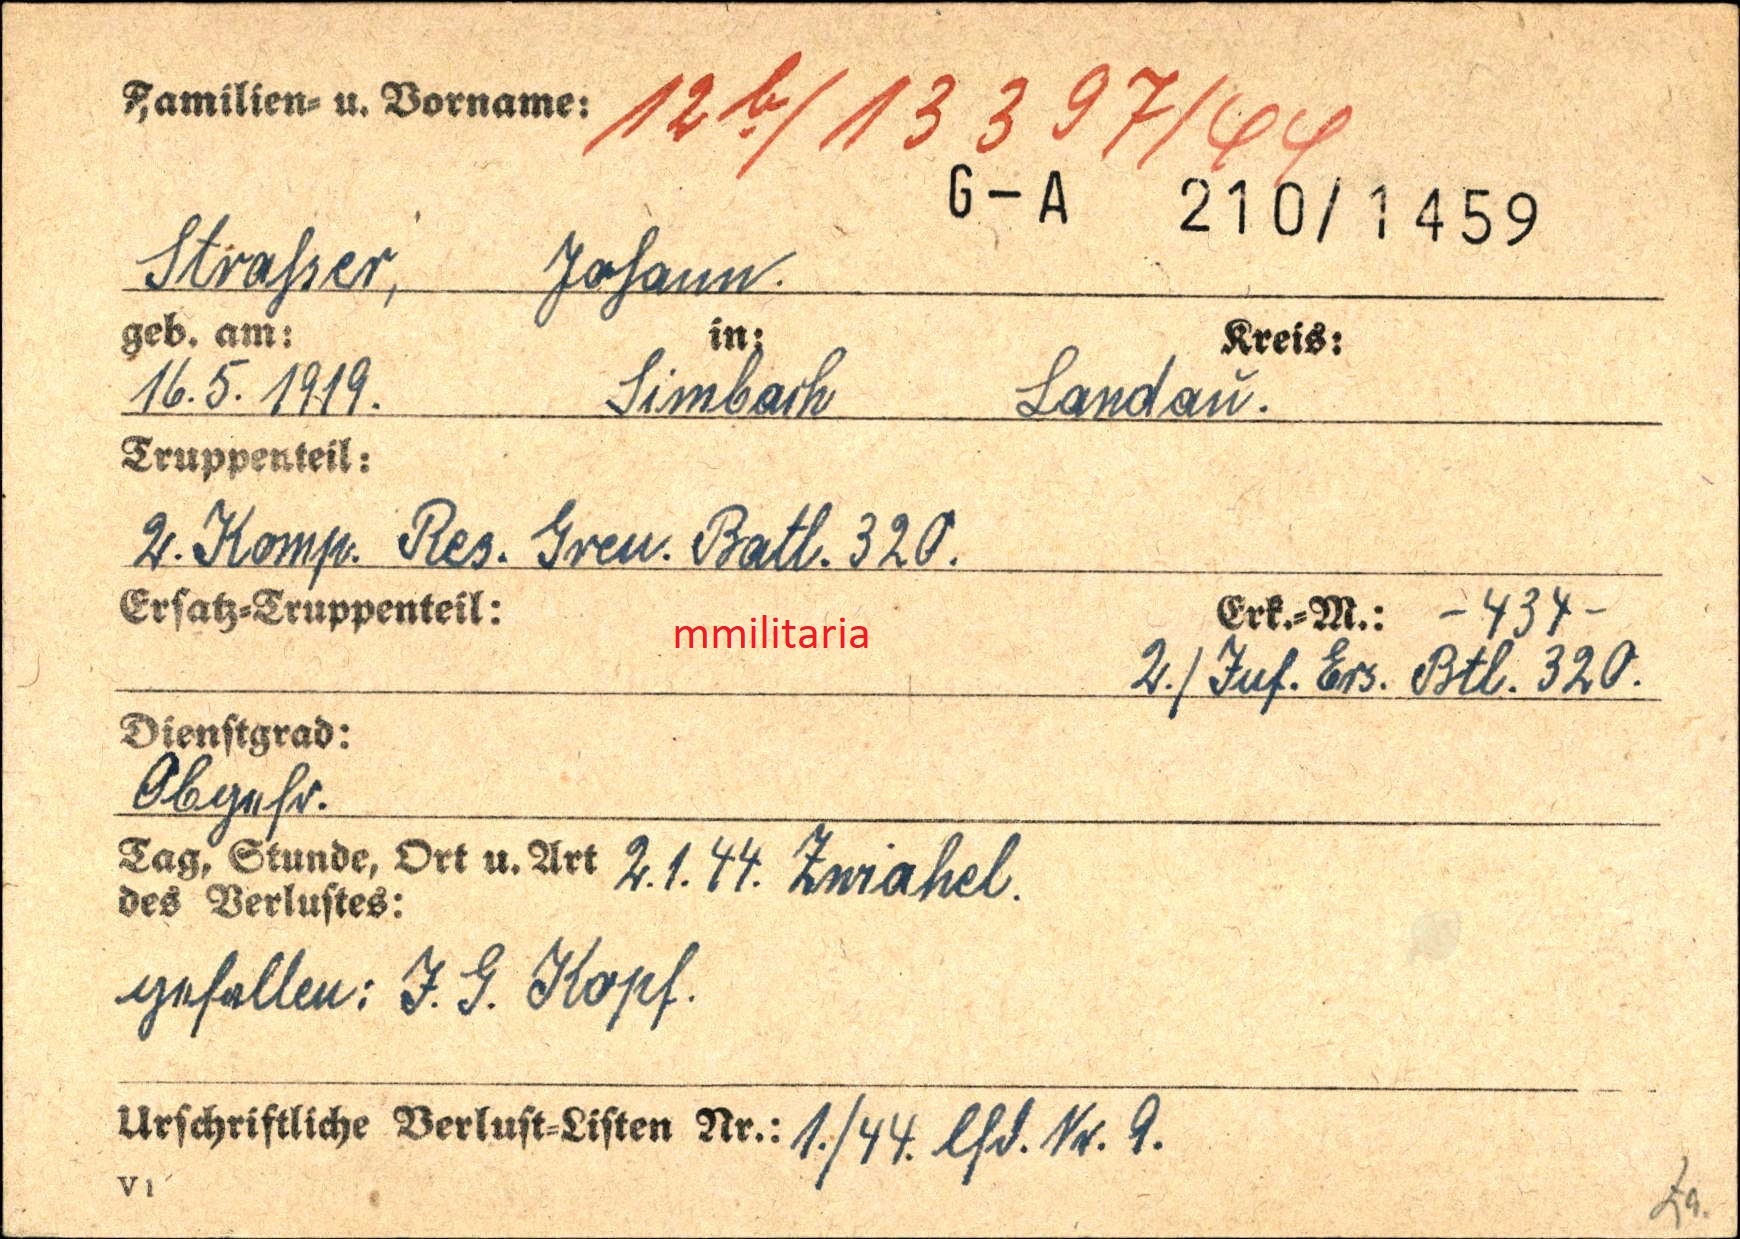 Familien- u. Vorname: 12b/13397/44
G-A 210/1459
Straßer, Johann.
geb. am: in: Kreis:
16.5.1919. Simbach Landau.
Truppenteil:
2. Komp. Res. Gren. Batl. 320.
Ersatz-Truppenteil: Erk.-M.: -434-
mmilitaria
2./Inf. Ers. Btl. 320.
Dienstgrad:
Obgefr.
Tag, Stunde, Ort u. Art 2.1.44. Zwiahel.
des Verlustes:
gefallen: I. G. Kopf.
Urschriftliche Verlust-Listen Nr.: 1./44. lfd. Nr. 9.
V 1